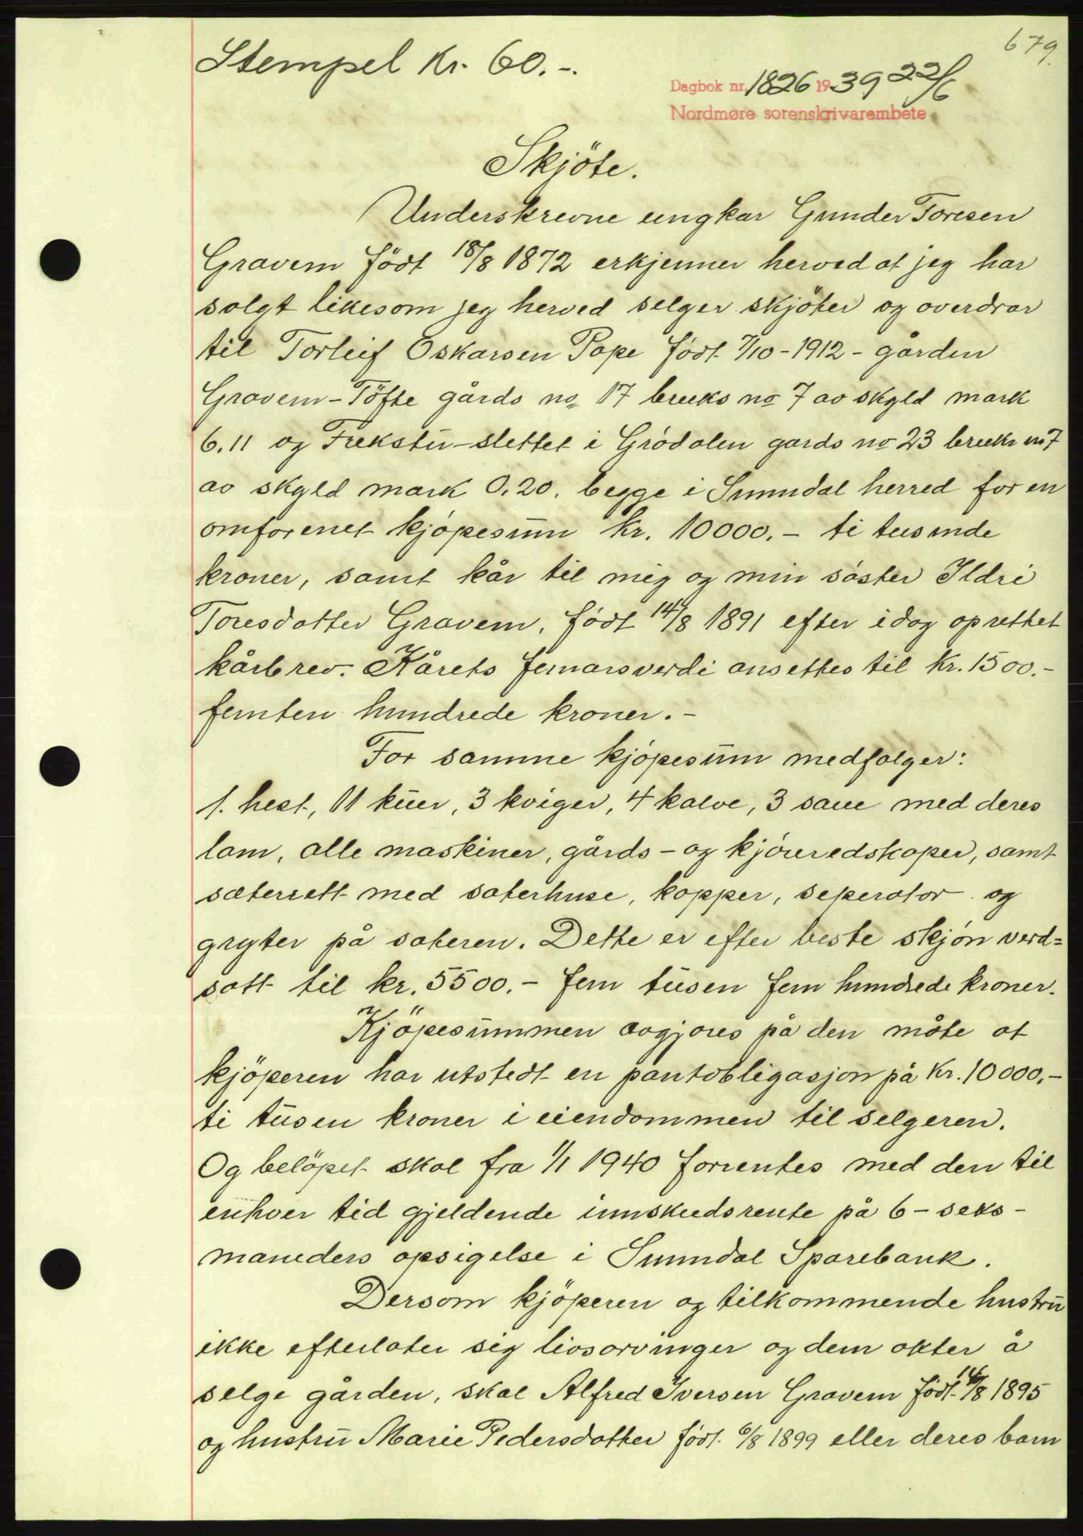 679.
Stempel Kr. 60.-.
Dagbok nr. 1826 1939 22/6
Nordmøre sorenskrivarembete
Skjöte.
Underskrevne ungkar Gunder Toresen
Gravem födt 18/8 1872 erkjenner herved at jeg har
solgt likesom jeg herved selger skjöter og overdrar
til Torleif Oskarsen Pape födt 7/10-1912- gården
Gravem-Töfte gårds no 17 bruks no 7 av skyld mark
6.11 og Frekstu-slettet i Grödalen gards no 23 bruks no 7
av skyld mark 0.20. begge i Sunndal herred for en
omforenet kjöpesum kr. 10000.- ti tusinde
kroner, samt kår til mig og min söster Ildri
Toresdatter Gravem, födt 14/8 1891 efter idag oprettet
kårbrev. Kårets femårsverdi ansettes til Kr. 1500.-
femten hundrede kroner.-
For samme kjöpesum medfölger:
1. hest, 11 kuer, 3 kviger, 4 kalve, 3 saue med deres
lam, alle maskiner, gårds- og kjöreredskaper, samt
sæterrett med sæterhuse, kopper, seperator og
gryter på sæteren. Dette er efter beste skjön verd=
satt til kr. 5500.- fem tusen fem hundrede kroner.
Kjöpesummen avgjores på den måte at
kjöperen har utstedt en pantobligasjon på Kr. 10000.-
ti tusen kroner i eiendommen til selgeren.
Og belöpet skal fra 1/1 1940 forrentes med den til
enhver tid gjeldende innskudsrente på 6- seks-
maneders opsigelse i Sunndal Sparebank.
Dersom kjöperen og tilkommende hustru
ikke efterlater sig livsarvinger og dem akter å
selge gården, skal Alfred Iversen Gravem födt 14/8 1895
og hustru Marie Pedersdatter födt 6/8 1899 eller deres barn